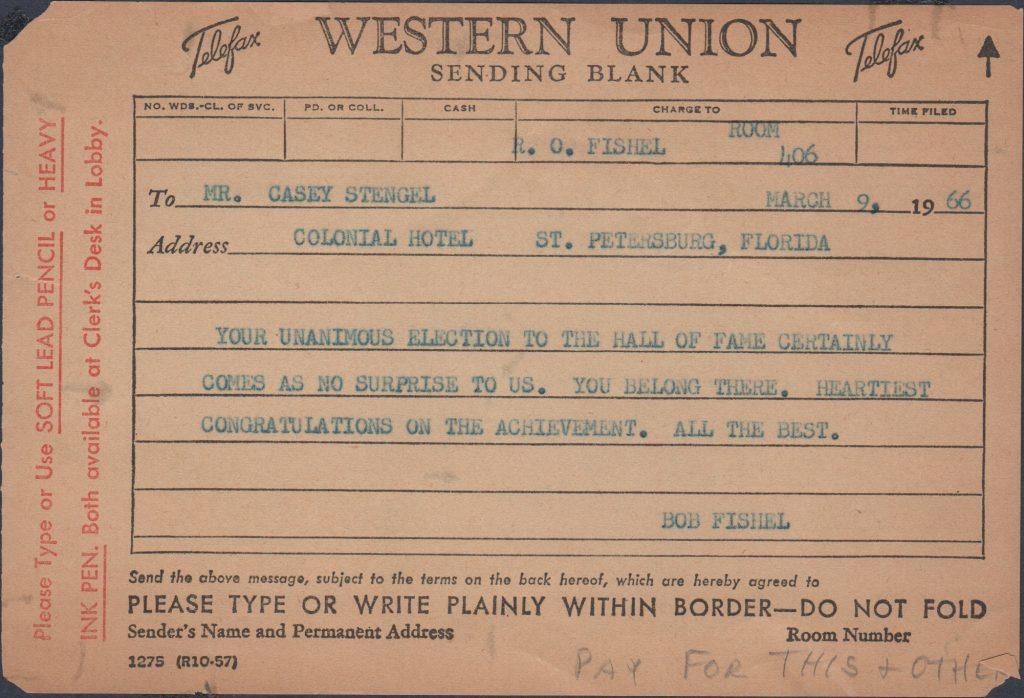 Telefax WESTERN UNION Telefax
SENDING BLANK
NO. WDS.-CL. OF SVC. PD. OR COLL. CASH CHARGE TO TIME FILED
R. O. FISHEL ROOM 406
To MR. CASEY STENGEL MARCH 9, 1966
Address COLONIAL HOTEL ST. PETERSBURG, FLORIDA
YOUR UNANIMOUS ELECTION TO THE HALL OF FAME CERTAINLY
COMES AS NO SURPRISE TO US. YOU BELONG THERE. HEARTIEST
CONGRATULATIONS ON THE ACHIEVEMENT. ALL THE BEST.
BOB FISHEL
Send the above message, subject to the terms on the back hereof, which are hereby agreed to
PLEASE TYPE OR WRITE PLAINLY WITHIN BORDER—DO NOT FOLD
Sender's Name and Permanent Address Room Number
1275 (R10-57)
PAY FOR THIS + OTHER
Please Type or Use SOFT LEAD PENCIL or HEAVY
INK PEN. Both available at Clerk's Desk in Lobby.